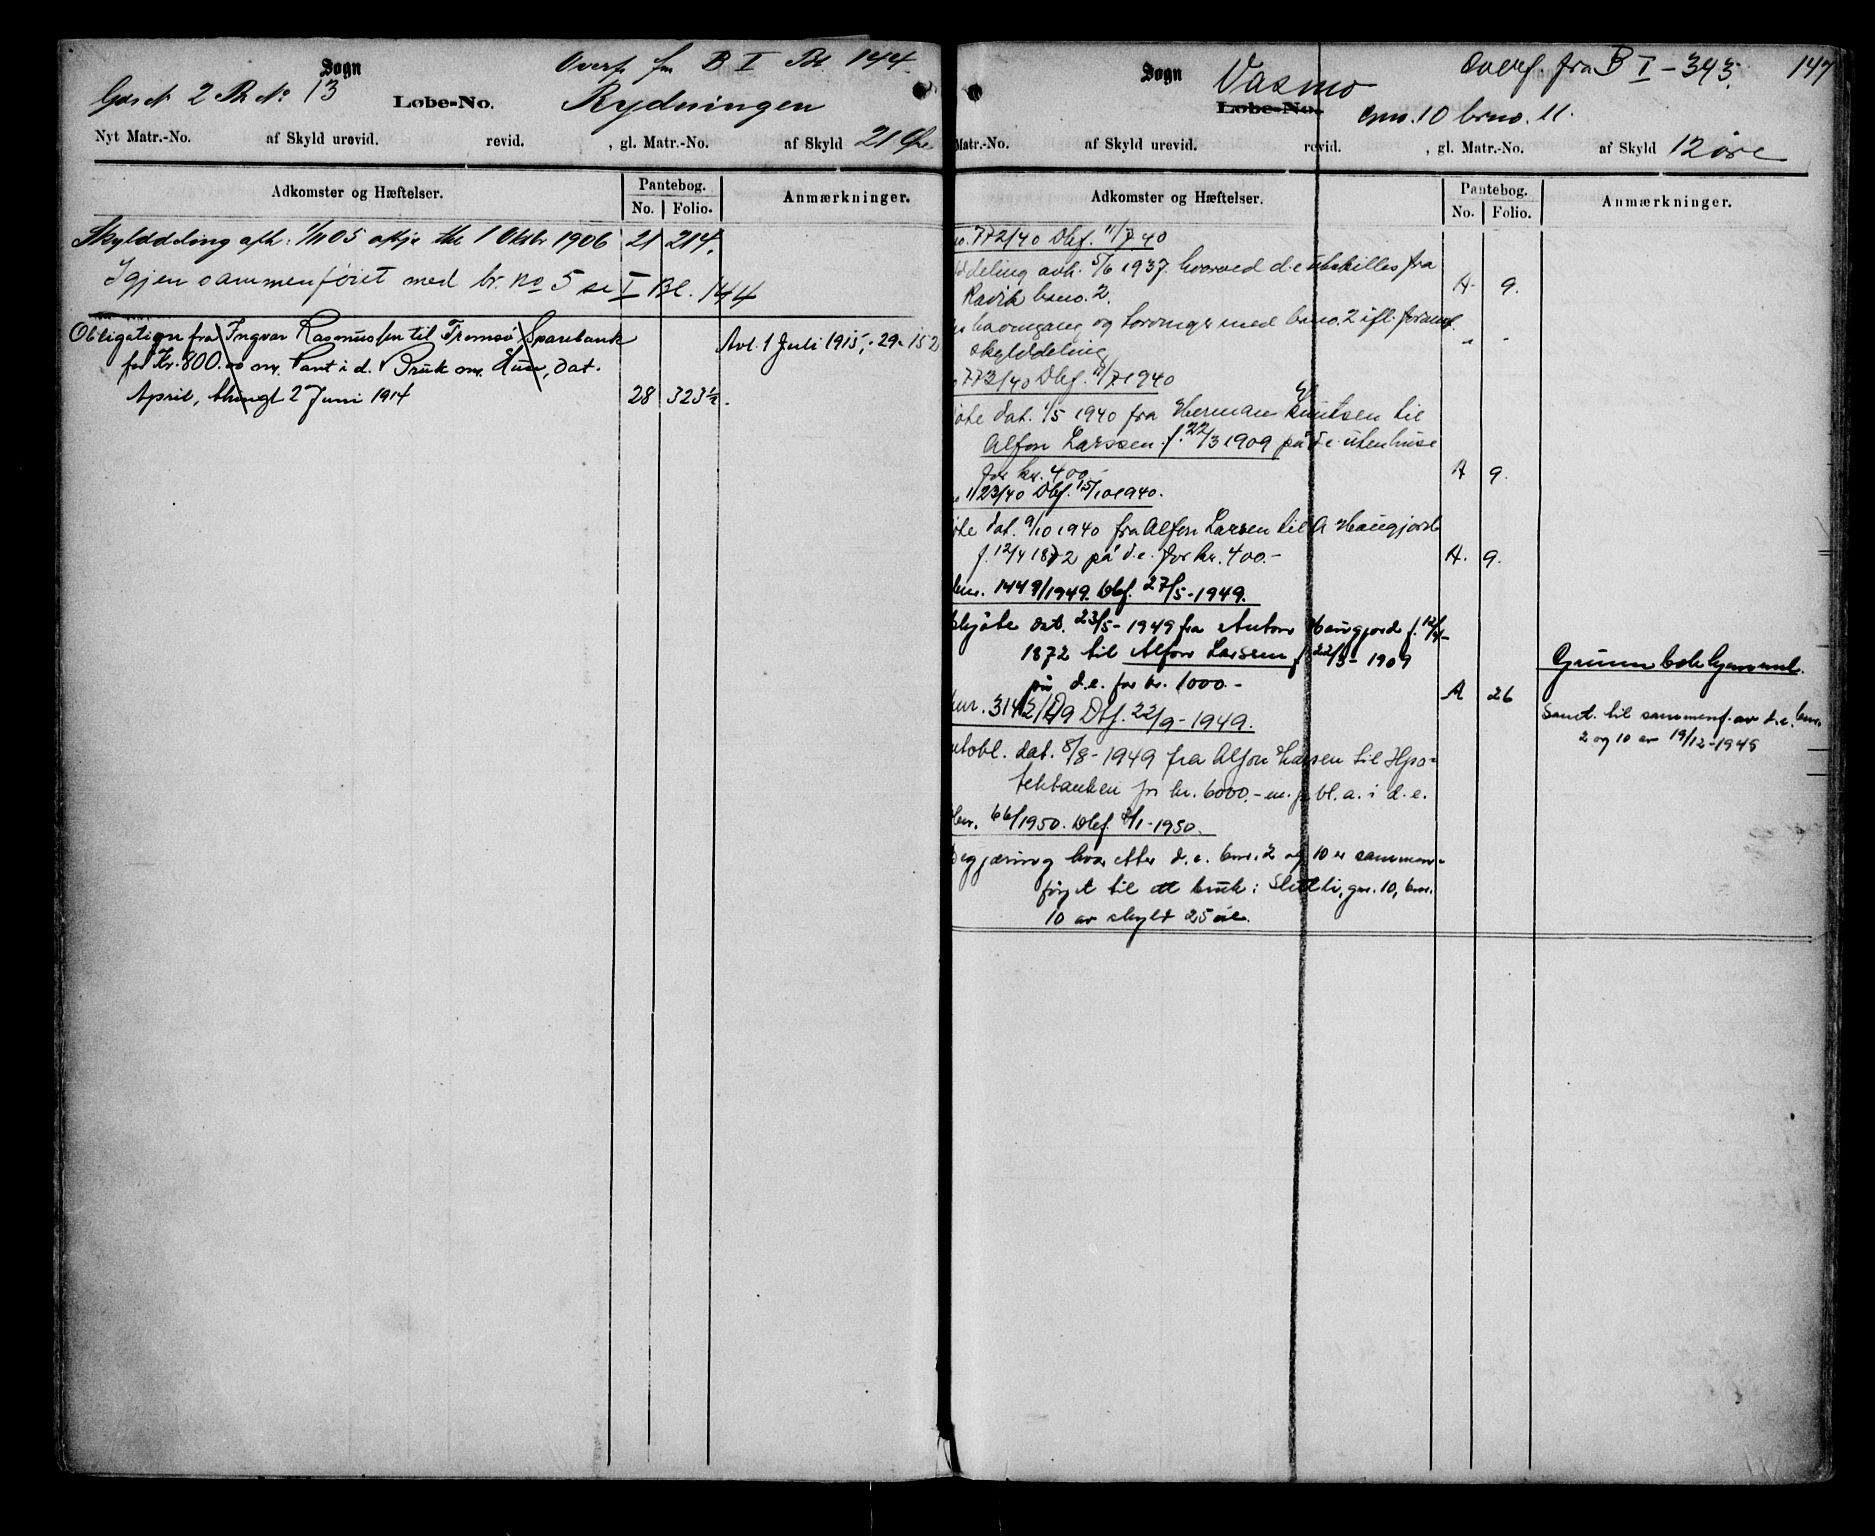 Overf. fra B I Bl. 144.
Sogn
Gards No 2 Br No 13
Løbe-No.
Rydningen
Nyt Matr.-No. af Skyld urevid. revid. , gl. Matr.-No. af Skyld 21 Øre
Adkomster og Hæftelser. Pantebog. No. Folio. Anmærkninger.
Skylddeling afh. 1/11 05 1 Oktbr 1906 21 214.
Igjen sammenføiet med br. no 5 se I Bl. 144
Obligation fra Ingvar Rasmussen til Tromsø Sparebank
for Kr. 800.00 m. Pant i d. Bruk m. Huse, dat.
April, thingl 2 Juni 1914 28 323½.
Avl. 1 Juli 1915, 29-152
Overf. fra B I - 343. 147
Sogn Vasmo
Løbe-No. Gno. 10 brno. 11.
Matr.-No. af Skyld urevid. revid. , gl. Matr.-No. af Skyld 12 øre
Adkomster og Hæftelser. Pantebog. No. Folio. Anmærkninger.
no. 772/40 Dbf. 11/7 40
lddeling avh. 5/6 1937 hvorved d.e. utskilles fra
Ravik brno. 2. A. 9.
havnegang og med brno. 2 ifl. foranf.
skylddeling " "
773/40 Dbf. 11/7 1940
jøte dat. 1/5 1940 fra Herman Knutsen til
Alfon Larssen f. 22/3 1909 på d.e. uten huse
for kr. 400.- A 9.
1123/40 Dbf. 15/10 1940.
øte dat. 9/10 1940 fra Alfon Larsen til A Haugjord
f. 12/4 1872 på d.e. for kr. 400.- A. 9.
bnr. 1449/1949. Dbf. 27/5-1949.
skjøte dat. 23/5-1949 fra Anton Haugjord f. 12/4-
1872 til Alfon Larssen f. 22/3-1909
på d.e. for kr. 1000.- A 26
nr. 3142/49 Dbf. 22/9-1949.
ntobl. dat. 8/8-1949 fra Alfon Larsen til Hypo-
tekbanken for kr. 6000.- m. p. bl. a. i d.e.
bnr. 66/1950. Dbf. 9/1-1950.
Begjæring hvoretter d.e. bnr. 2 og 10 er sammen-
føyet til ett bruk: Slettli, gnr. 10, bnr.
10 av skyld 25 øre.
Grunnbok hjemmel.
Samt. til sammenf. av d.e. bnr.
2 og 10 av 19/12-1949